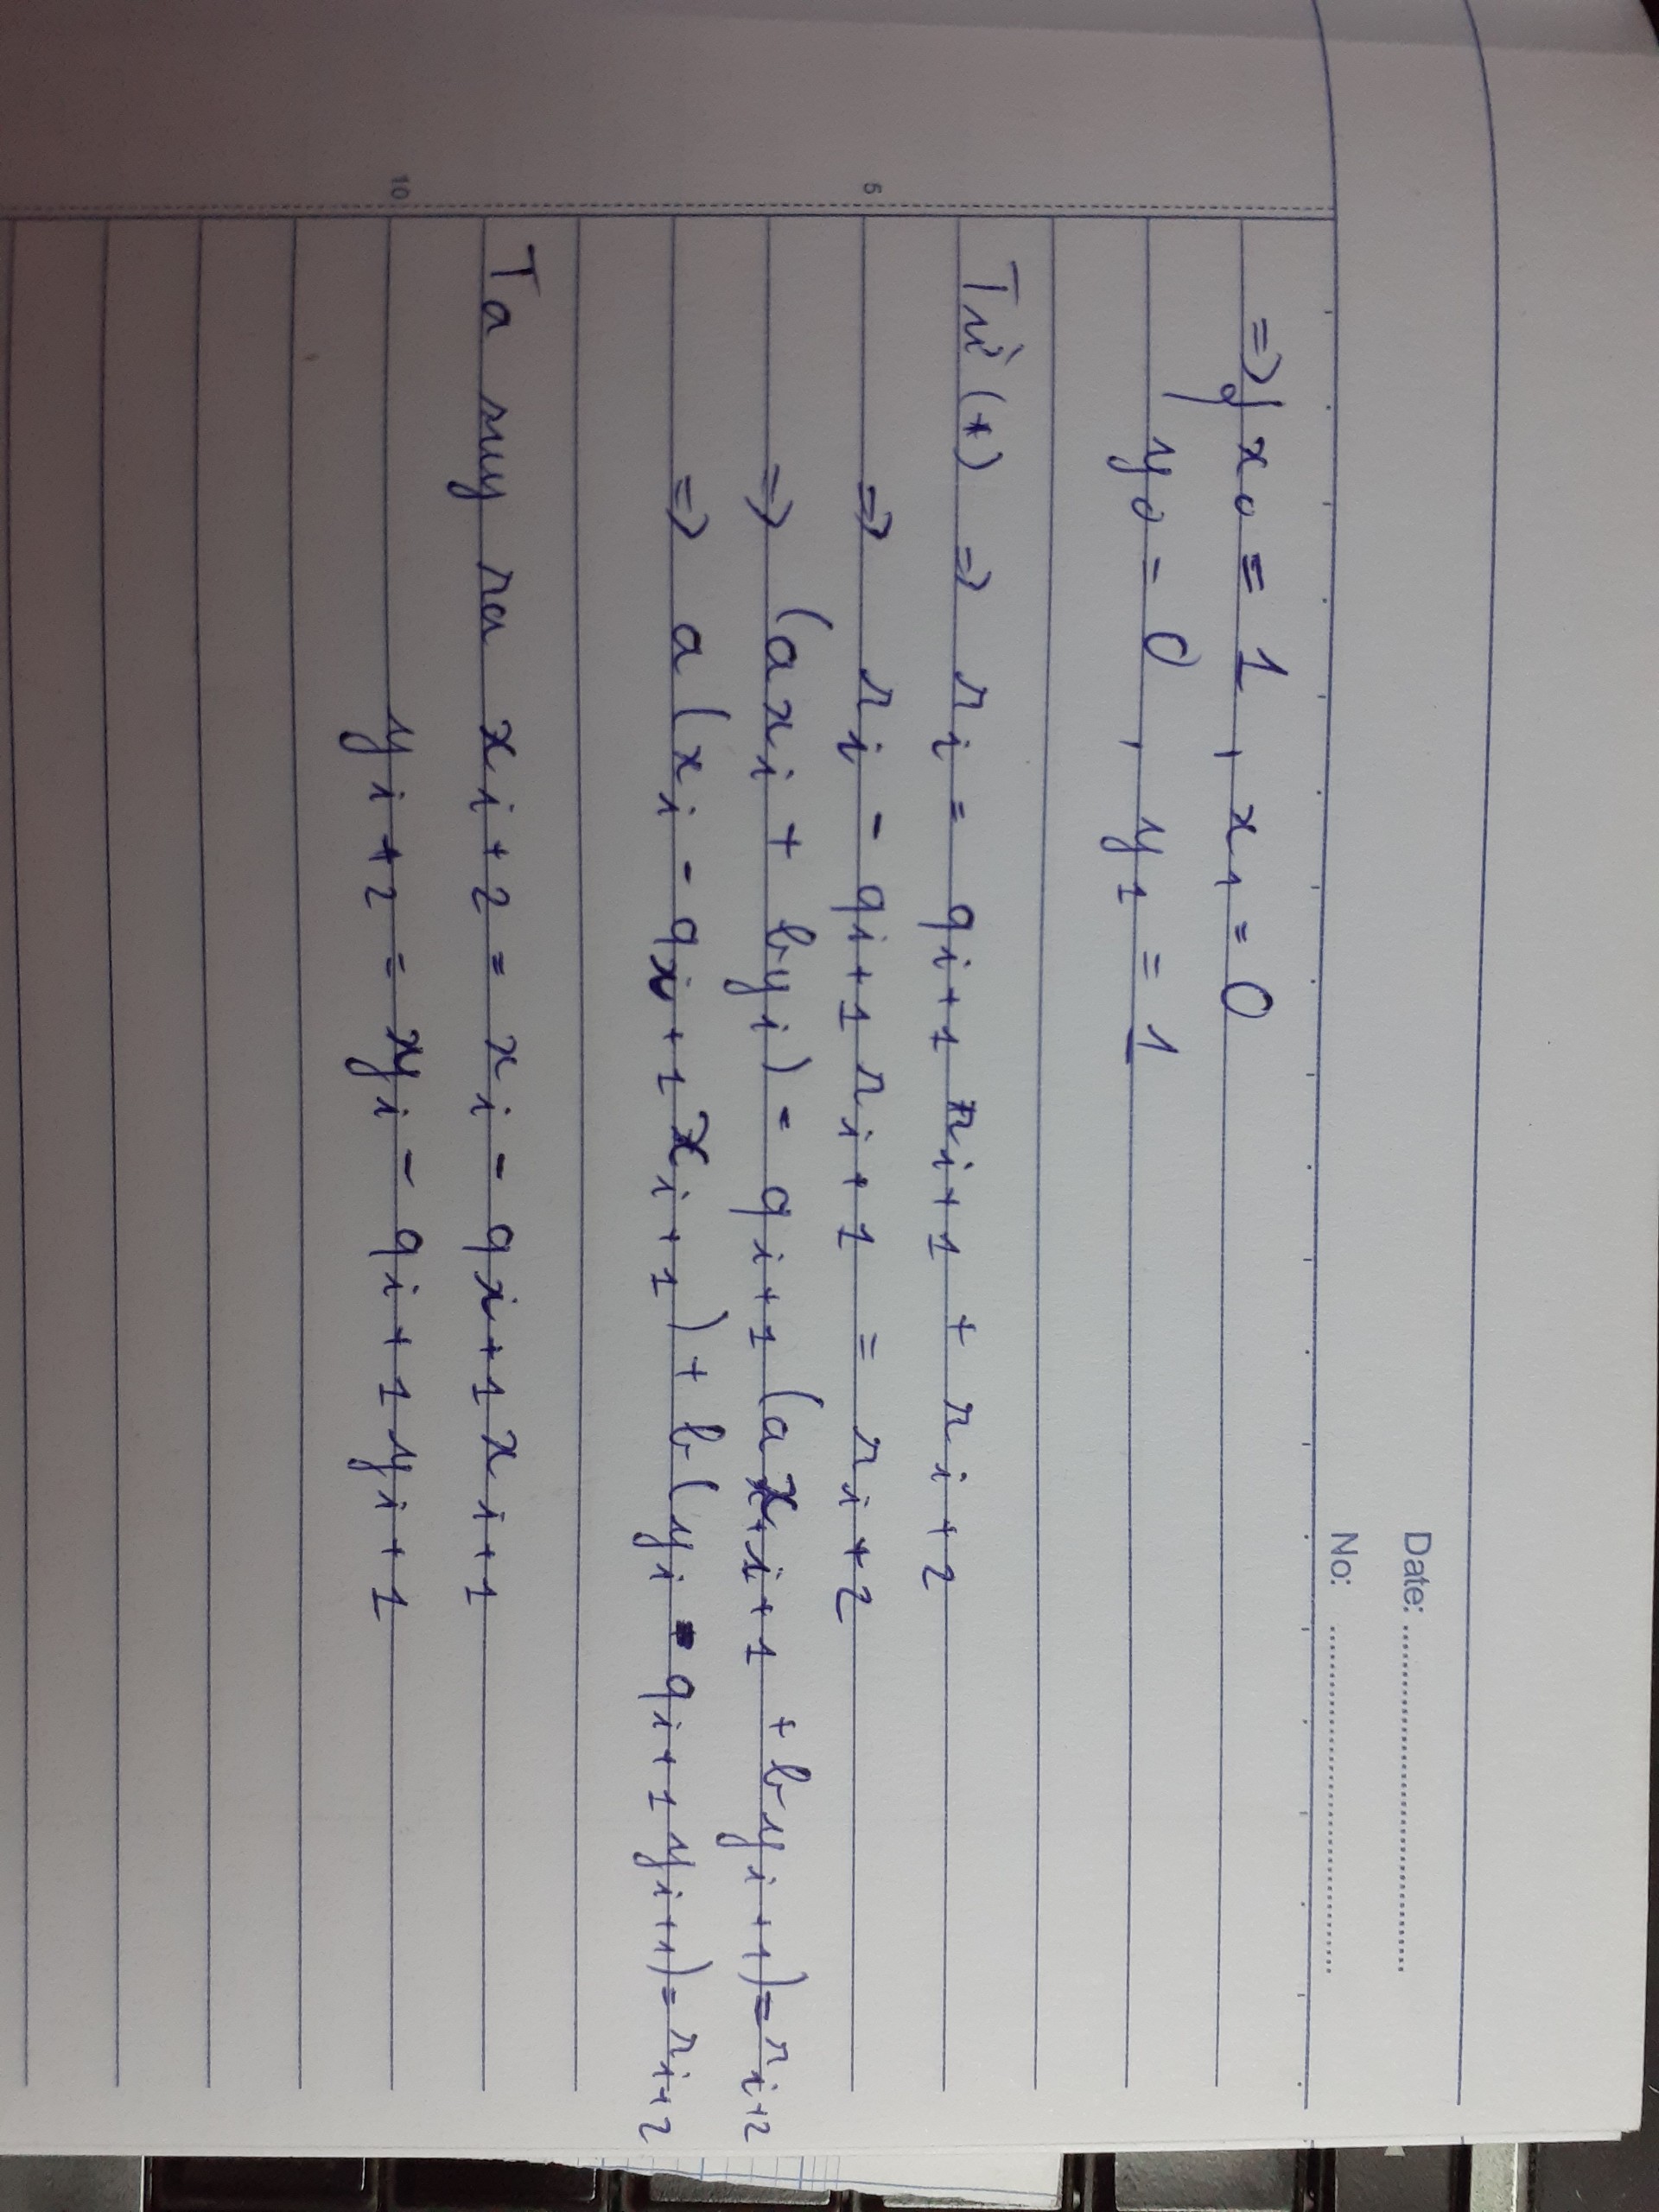 Date: ........................
No: ........................
=> { x₀ = 1 , x₁ = 0
y₀ = 0 , y₁ = 1
Từ (*) => rᵢ = qᵢ₊₁ rᵢ₊₁ + rᵢ₊₂
5
=> rᵢ - qᵢ₊₁ rᵢ₊₁ = rᵢ₊₂
=> (axᵢ + byᵢ) - qᵢ₊₁ (axᵢ₊₁ + byᵢ₊₁) = rᵢ₊₂
=> a(xᵢ - qᵢ₊₁ xᵢ₊₁) + b(yᵢ - qᵢ₊₁ yᵢ₊₁) = rᵢ₊₂
Ta suy ra xᵢ₊₂ = xᵢ - qᵢ₊₁ xᵢ₊₁
10
yᵢ₊₂ = yᵢ - qᵢ₊₁ yᵢ₊₁